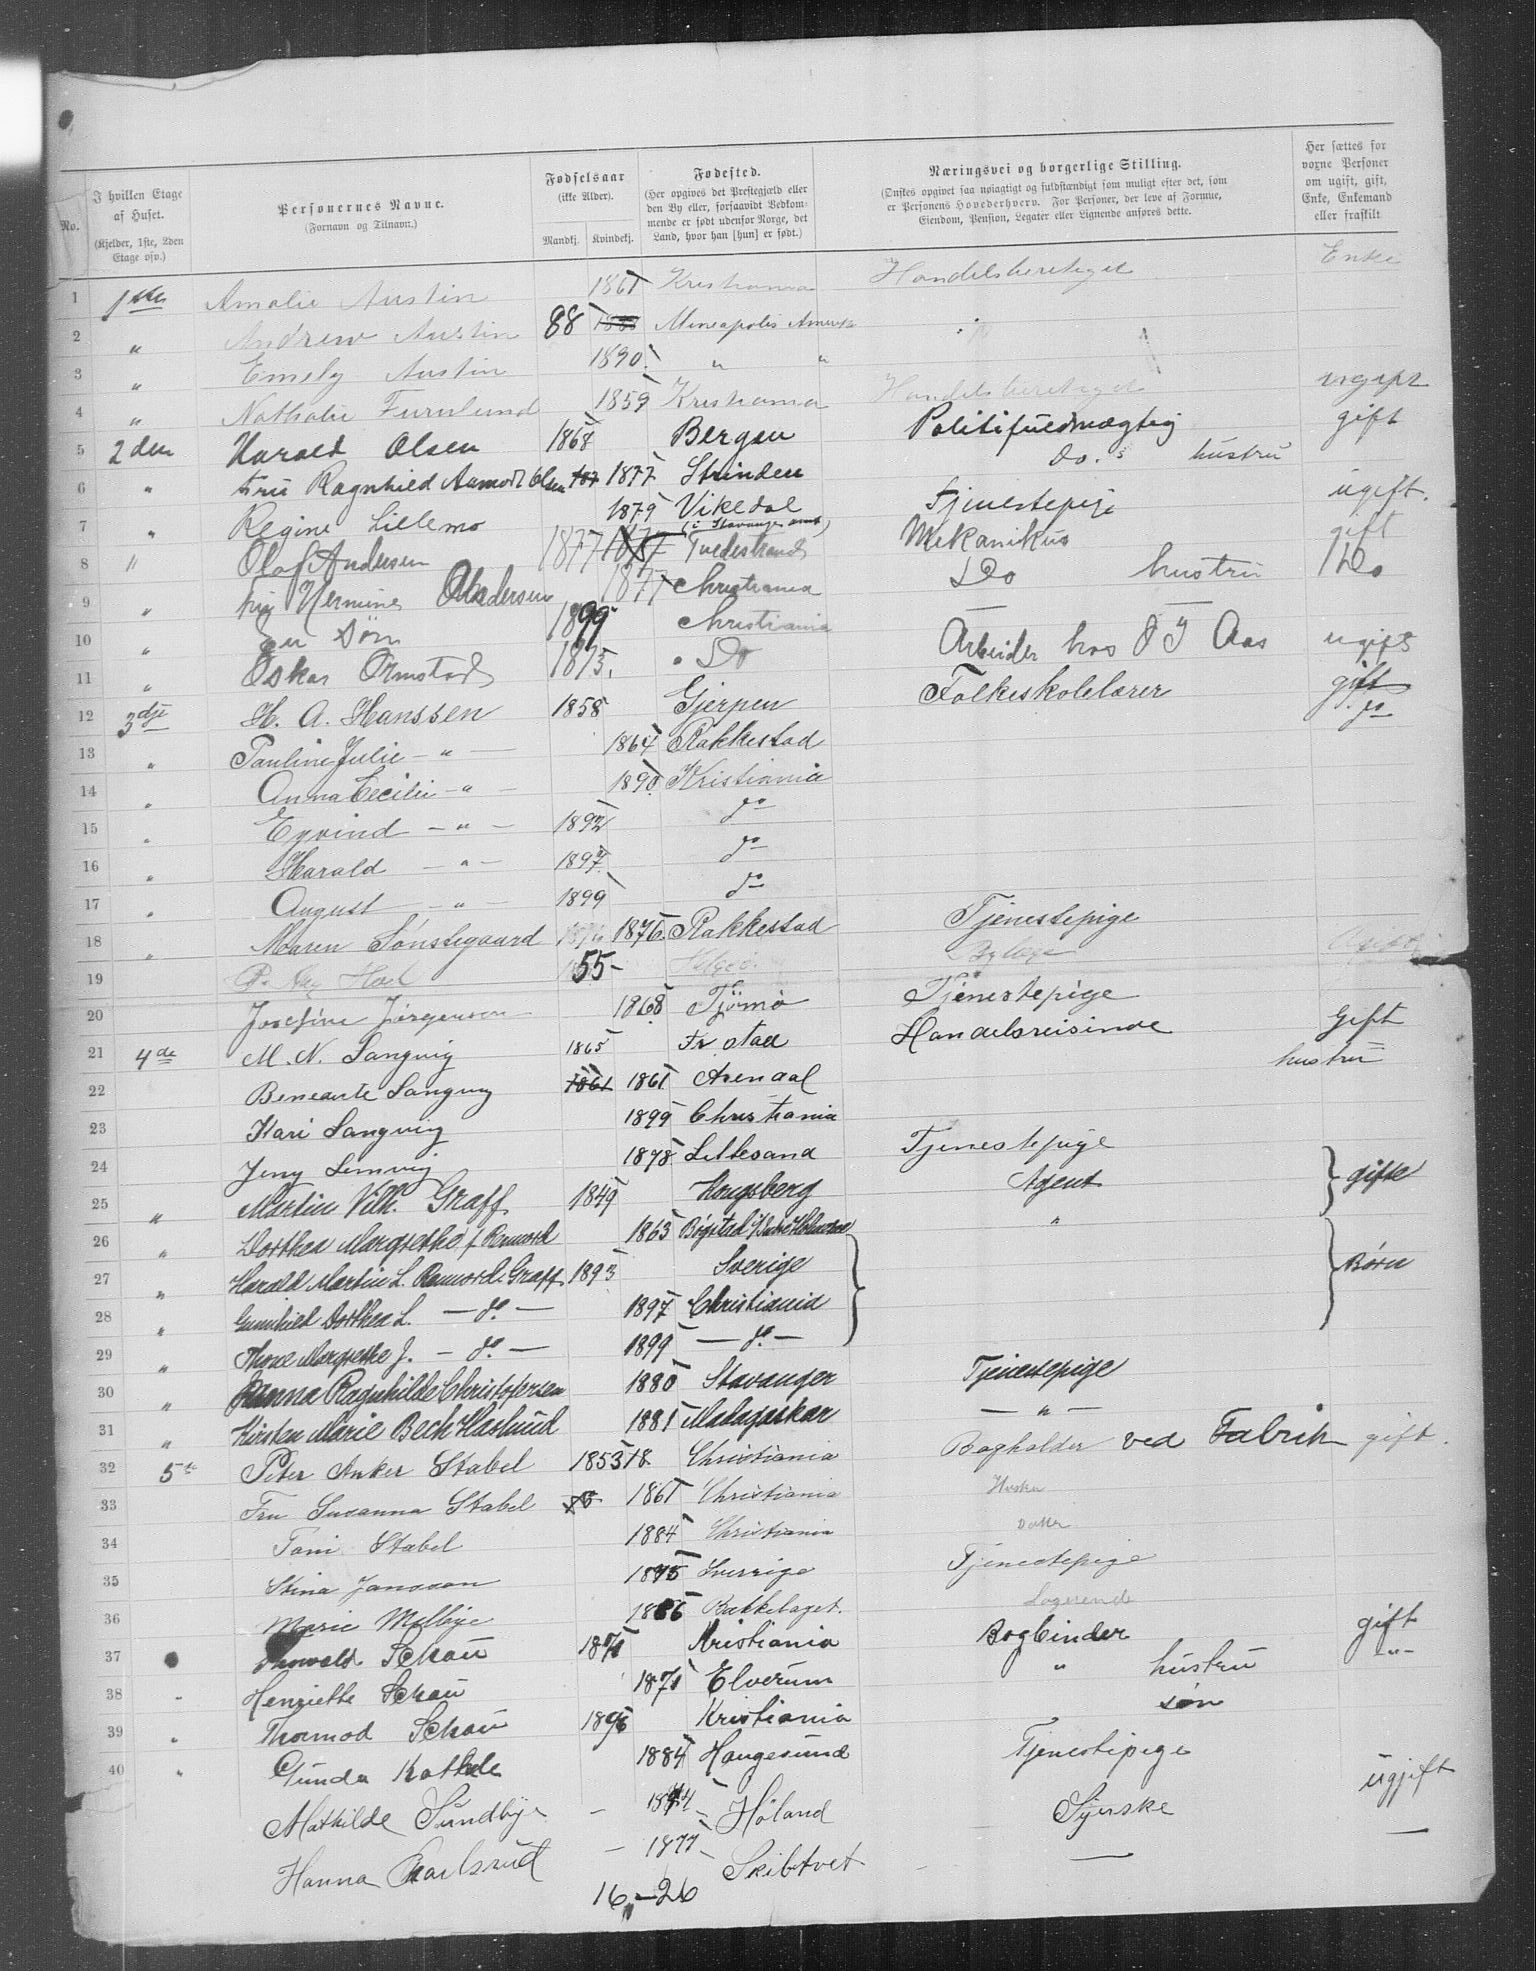 No.
I hvilken Etage af Huset.
(Kjelder, 1ste, 2den Etage osv.)
Personernes Navne.
(Fornavn og Tilnavn.)
Fødselsaar
(ikke Alder).
Mandkj. Kvindekj.
Fødested.
(Her opgives det Prestegjæld eller den By eller, forsaavidt Vedkommende er født udenfor Norge, det Land, hvor han [hun] er født.)
Næringsvei og borgerlige Stilling.
(Ønskes opgivet saa nøiagtigt og fuldstændigt som muligt efter det, som er Personens Hovederhverv. For Personer, der leve af Formue, Eiendom, Pension, Legater eller Lignende anføres dette.
Her sættes for voxne Personer om ugift, gift, Enke, Enkemand eller fraskilt
1 1ste Amalie Austin 1861 Kristiania Handelsberetiget Enke
2 " Andrew Austin 88 Mineapolis Amerika
3 " Emely Austin 1890 " "
4 " Nathalie Furulund 1859 Kristiania Handelsberetiget ugift
5 2den Harald Olsen 1868 Bergen Politifuldmægtig gift
6 " Fru Ragnhild Aamodt Olsen 1877 Strinden do.s hustru
7 " Regine Lillemo 1879 Vikedal (i Stavanger amt) Tjenestepige ugift.
8 " Olaf Andersen 1877 Tvedestrand Mekanikus gift
9 " Fru Hermine Andersen 1877 Christiania Do hustru Do
10 " En Søn 1899 Christiania — —
11 " Oskar Ormstad 1873. " Do Arbeider hos O J Aas ugift
12 3dje H. A. Hanssen 1858 Gjerpen Folkeskolelærer gift
13 " Pauline Julie — " — 1864 Rakkestad do
14 " Anna Cecilie — " — 1890. Kristiania
15 " Eyvind — " — 1892 do
16 " Harald — " — 1897 do
17 " August — " — 1899 do
18 " Maren Sønstegaard 1876. Rakkestad Tjenestepige
19 55
20 Josefine Jørgensen 1868 Tjömö Tjenestepige
21 4de M. N. Langvig 1865 Fr stad Handelsreisende Gift
22 Beneante Langvig 1861 1861 Arendal hustru
23 Kari Langvig 1899 Christiania
24 Jeny Lemvig 1878 Lillesand Tjenestepige
25 " Martin Vilh. Graff 1849 Kongsberg Agent } gifte
26 " Dorthea Margrethe f. Remvord 1863 "
27 " Harald Martin L. Remvord Graff 1893 Sverige } Børn
28 " Gunhild Dorthea L. — do — 1897 Christiania
29 " Thone Margrethe J. — do — 1899 — do —
30 " Hanna Ragnhilde Christofersen 1880 Stavanger Tjenestepige
31 " Kirsten Marie Bech Haslund 1881 Madagaskar — " —
32 5te Peter Anker Stabel 1853 18 Christiania Bogholder ved Fabrik gift.
33 Fru Susanna Stabel 1861 Christiania Hustru
34 Toni Stabel 1884 Christiania Datter
35 Stina Jansson 1875 Sverrige Tjenestepige
36 Marie Melbye 1886 Bækkelaget. Logerende
37 Thorvald Schau 1871 Kristiania Bogbinder gift
38 " Henriette Schau 1871 Elverum " hustru — " —
39 " Thormod Schau 1896 Kristiania søn
40 " Gunda Kathle 1884 Haugesund Tjenestepige
Mathilde Sundbye — 1874 Høland Syerske ugift
Hanna Karlsrud — 1877 Skibtvet — —
16 — 26